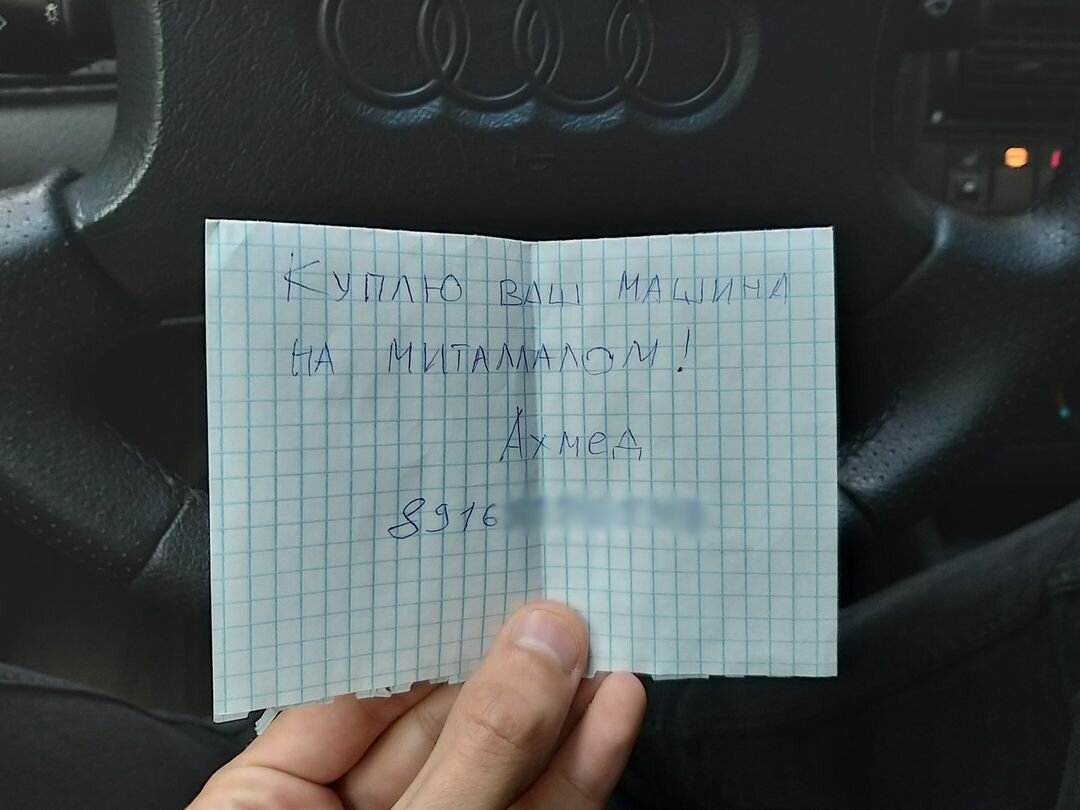 Куплю ваш машина
на миталлалом!
Ахмед
8916